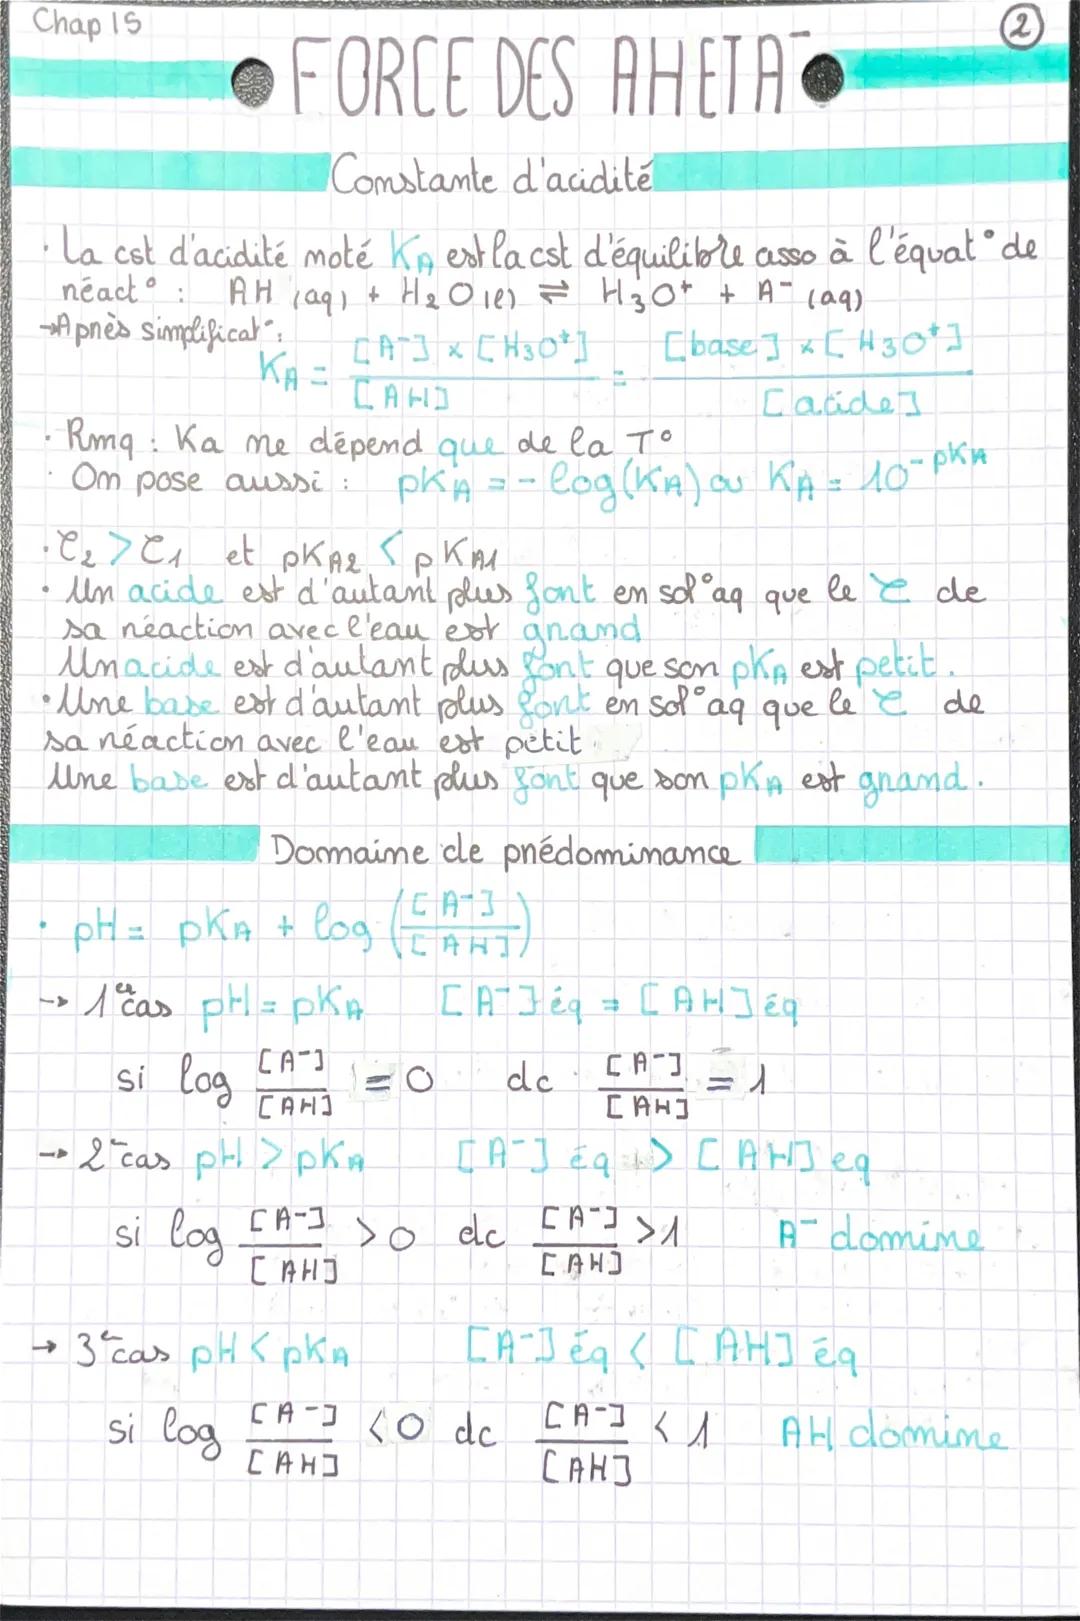 Chap 15
2
FORCE DES AH ET A⁻
Constante d'acidité
· La cst d'acidité noté KA est la cst d'équilibre asso à l'équat° de
réact° : AH (aq) + H₂O (l) ⇌ H₃O⁺ + A⁻ (aq)
→Après simplificat° :
KA = [A⁻] × [H₃O⁺] / [AH] = [base] × [H₃O⁺] / [acide]
· Rmq : Ka ne dépend que de la T°
· On pose aussi : pKA = - log(KA) ou KA = 10^-pKA
· τ₂ > τ₁ et pKA2 < pKA1
· Un acide est d'autant plus fort en sol°aq que le τ de
sa réaction avec l'eau est grand
Un acide est d'autant plus fort que son pKA est petit.
· Une base est d'autant plus fort en sol°aq que le τ de
sa réaction avec l'eau est petit
Une base est d'autant plus fort que son pKA est grand.
Domaine de prédominance
· pH = pKA + log ([A⁻] / [AH])
→ 1er cas pH = pKA [A⁻]éq = [AH]éq
si log [A⁻] / [AH] = 0 dc [A⁻] / [AH] = 1
→ 2e cas pH > pKA [A⁻] éq > [AH] eq
si log [A⁻] / [AH] > 0 dc [A⁻] / [AH] > 1 A⁻ domine
→ 3e cas pH < pKA [A⁻] éq < [AH] éq
si log [A⁻] / [AH] < 0 dc [A⁻] / [AH] < 1 AH domine